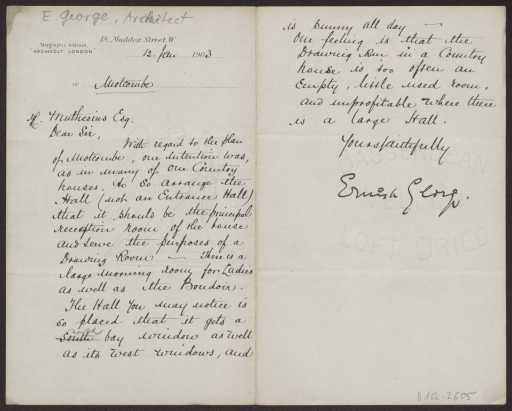 E George, Architect
18, Maddox Street. W.
Telegraphic Address,
"ARCHITECT LONDON"
12 Jan 1903
Motcombe
H. Muthesius Esq.
Dear Sir,
With regard to the plan
of Motcombe, our intention was,
as in many of our Country
houses, to so arrange the
Hall (not an Entrance Hall)
that it should be the principal
reception room of the house
and serve the purposes of a
Drawing Room — There is a
large morning room for Ladies
as well as the Boudoir.
The Hall you may notice is
so placed that it gets a
South bay window as well
as its West windows, and
is sunny all day —
Our feeling is that the
Drawing Rm in a Country
house is too often an
empty, little used room,
and unprofitable where there
is a large Hall.
Yours faithfully
Ernest George.